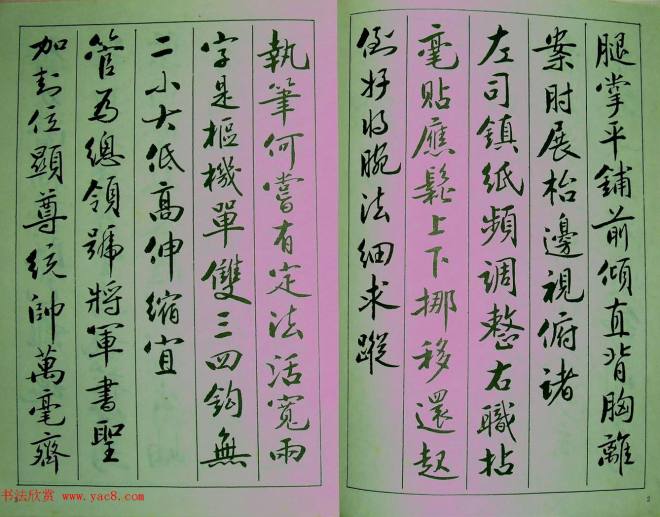 腿掌平鋪前傾直背胸離
案肘展枱邊視俯諸
左司鎮紙頻調整右職拈
毫貼應鬆上下挪移還起
倒好將腕法細求蹤
執筆何嘗有定法活寬兩
字是樞機單雙三四鈎無
二小大低高伸縮宜
管為總領號將軍書聖
加封位顯尊統帥萬毫齊
2
书法欣赏 www.yac8.com